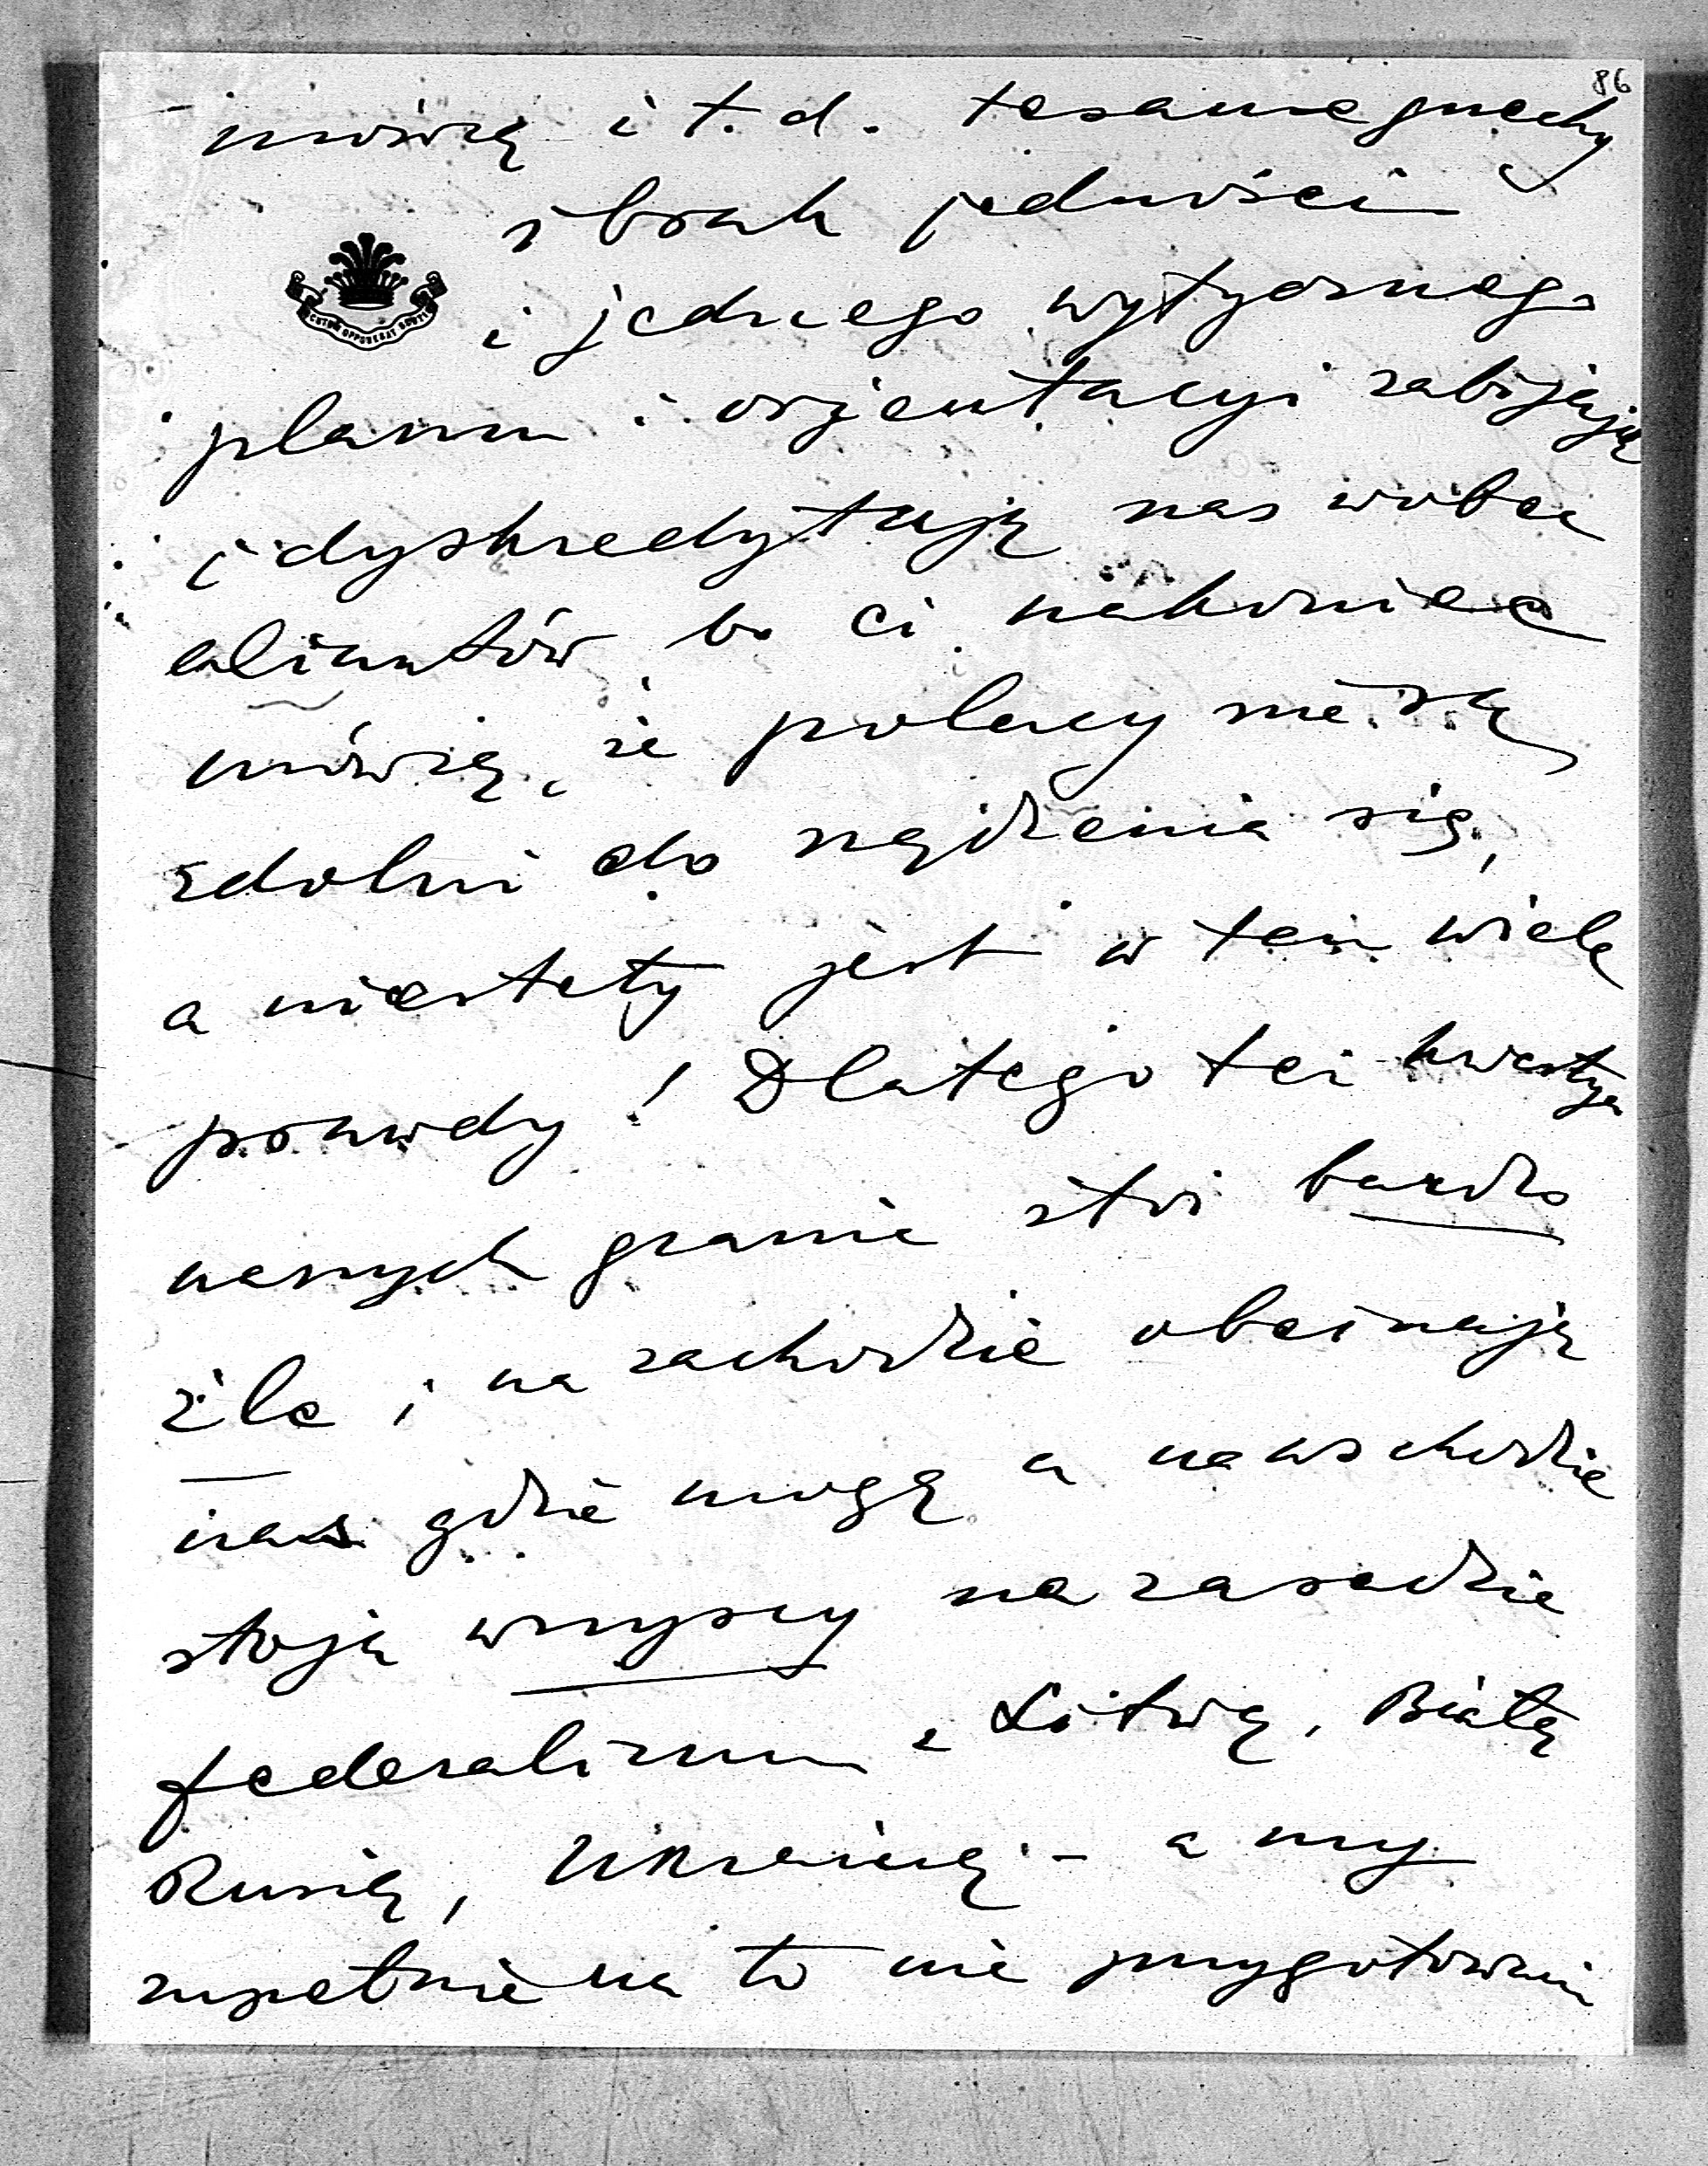 86
mówią i t. d. tesame grzechy
i brak jedności
i jednego wytycznego
planu i orjentacyi zabijają
i dyskredytują nas wobec
aliantów, bo ci nakoniec
mówią, że polacy nie są
zdolni do rządzenia się,
a niestety jest w tem wiele
prawdy! Dlatego też kwestya
naszych granic stoi bardzo
źle i na zachodzie obcinają
nas gdzie mogą a na wschodzie
stoją wszyscy na zasadzie
federalizmu z Litwą, Białą
Rusią, Ukrainą - a my
zupełnie na to nie przygotowani